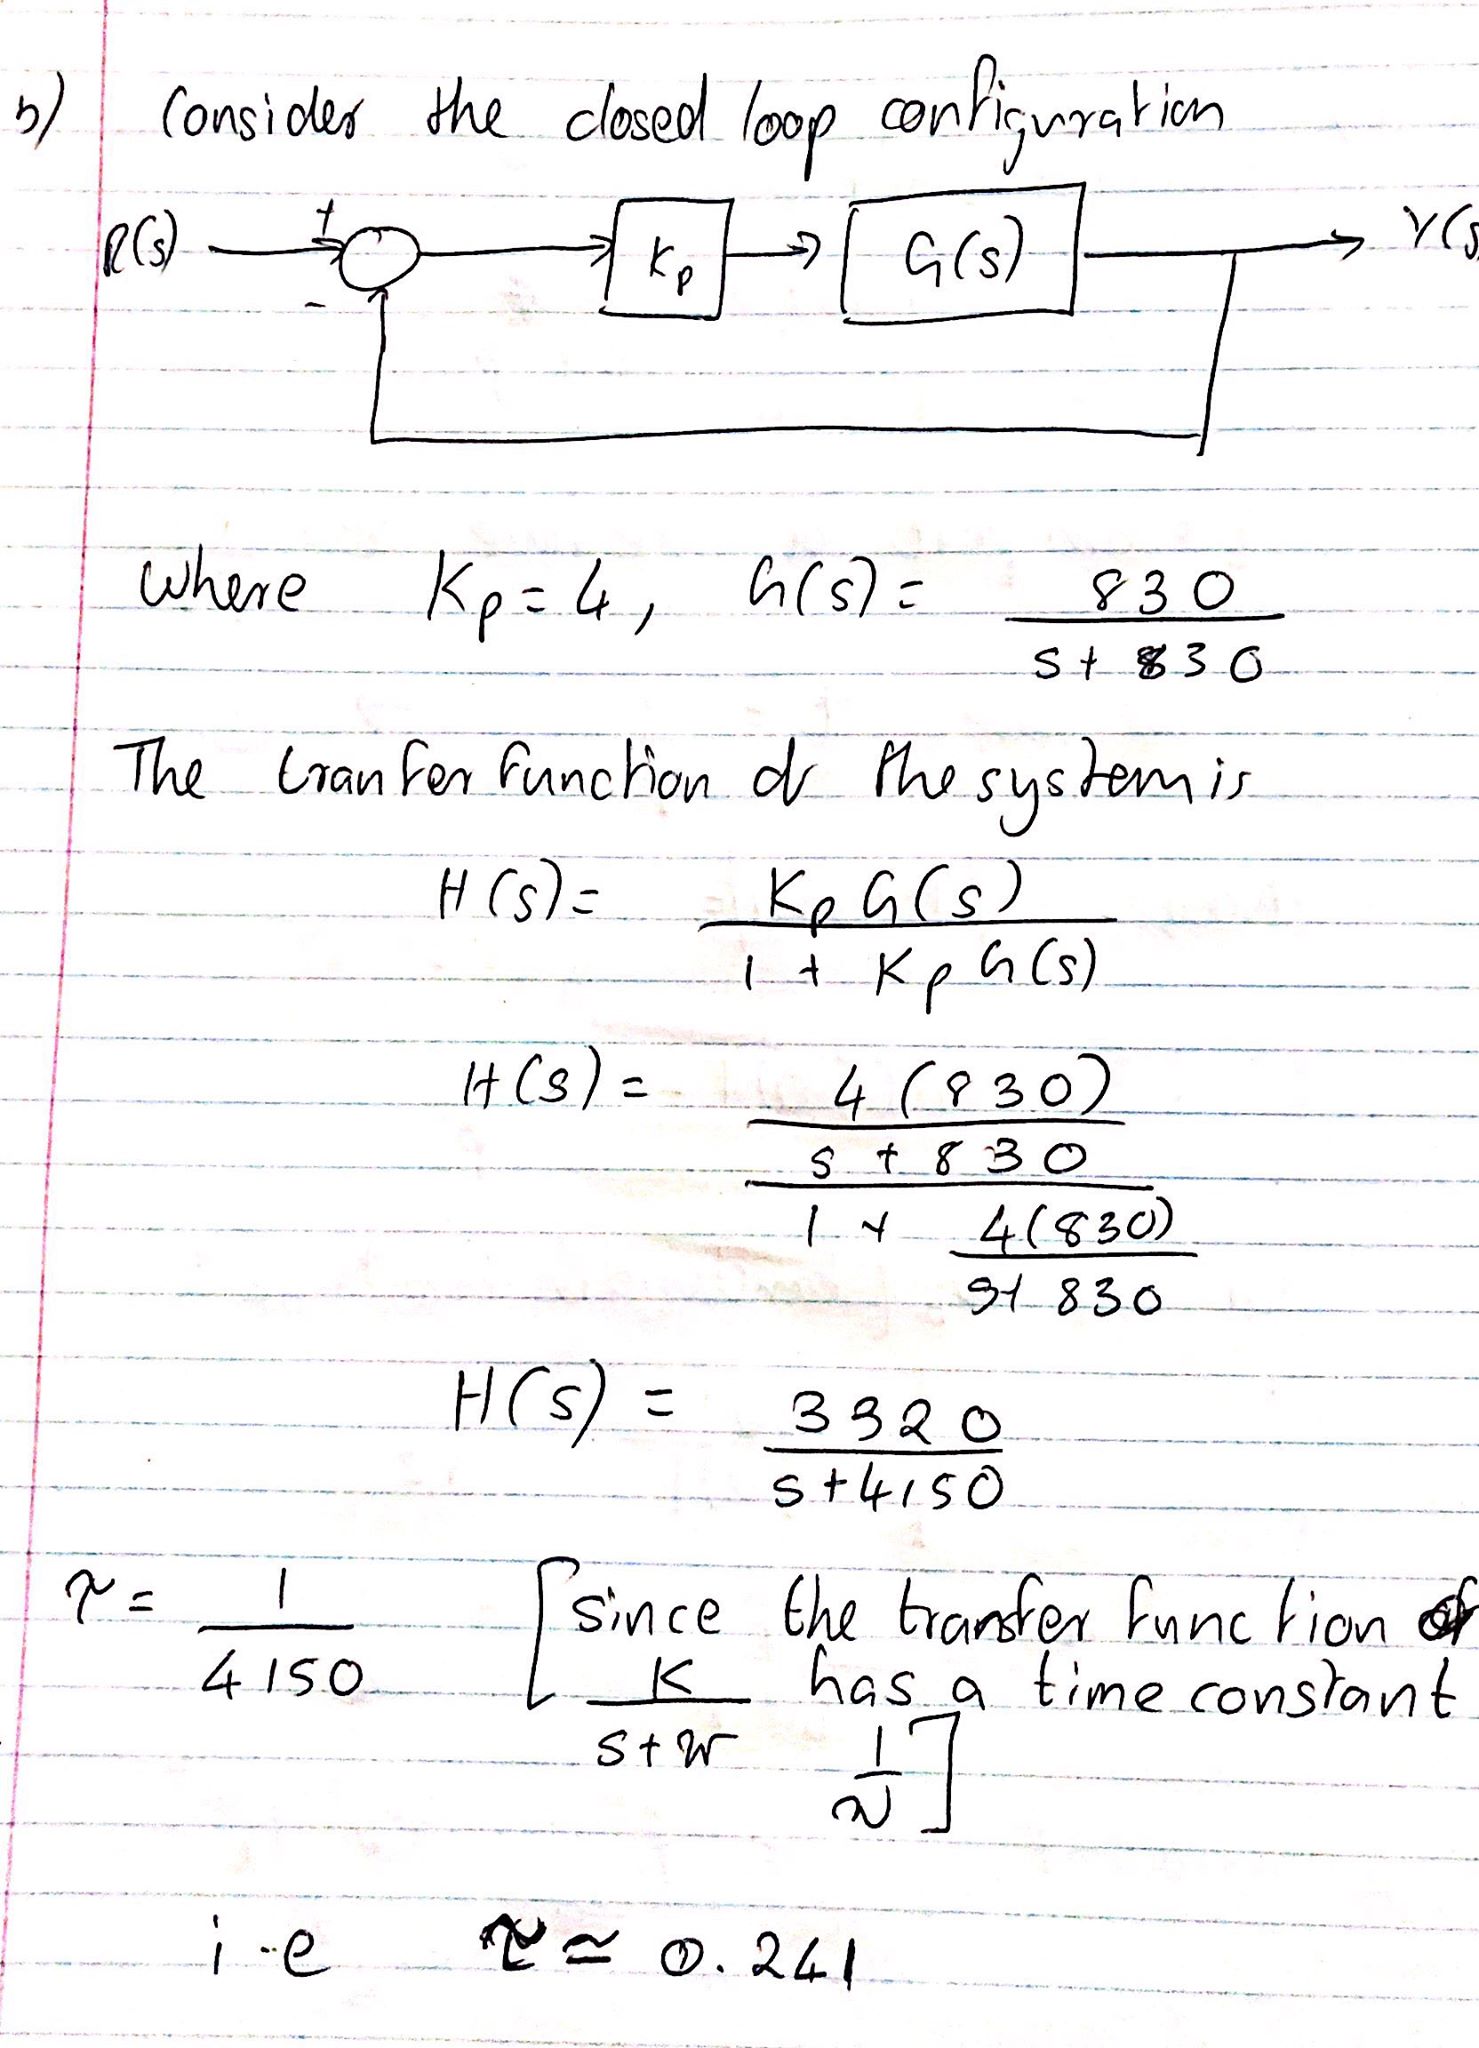 b) Consider the closed loop configuration
R(s) + - Kp G(s) Y(s)
where Kp = 4, G(s) = 830 / s + 830
The tranfer function of the system is
H(s) = Kp G(s) / 1 + Kp G(s)
H(s) = 4(830) / s + 830 / 1 + 4(830) / s + 830
H(s) = 3320 / s + 4150
τ = 1 / 4150 [since the transfer function of
K / s + w has a time constant
1 / w]
i.e τ ≃ 0.241